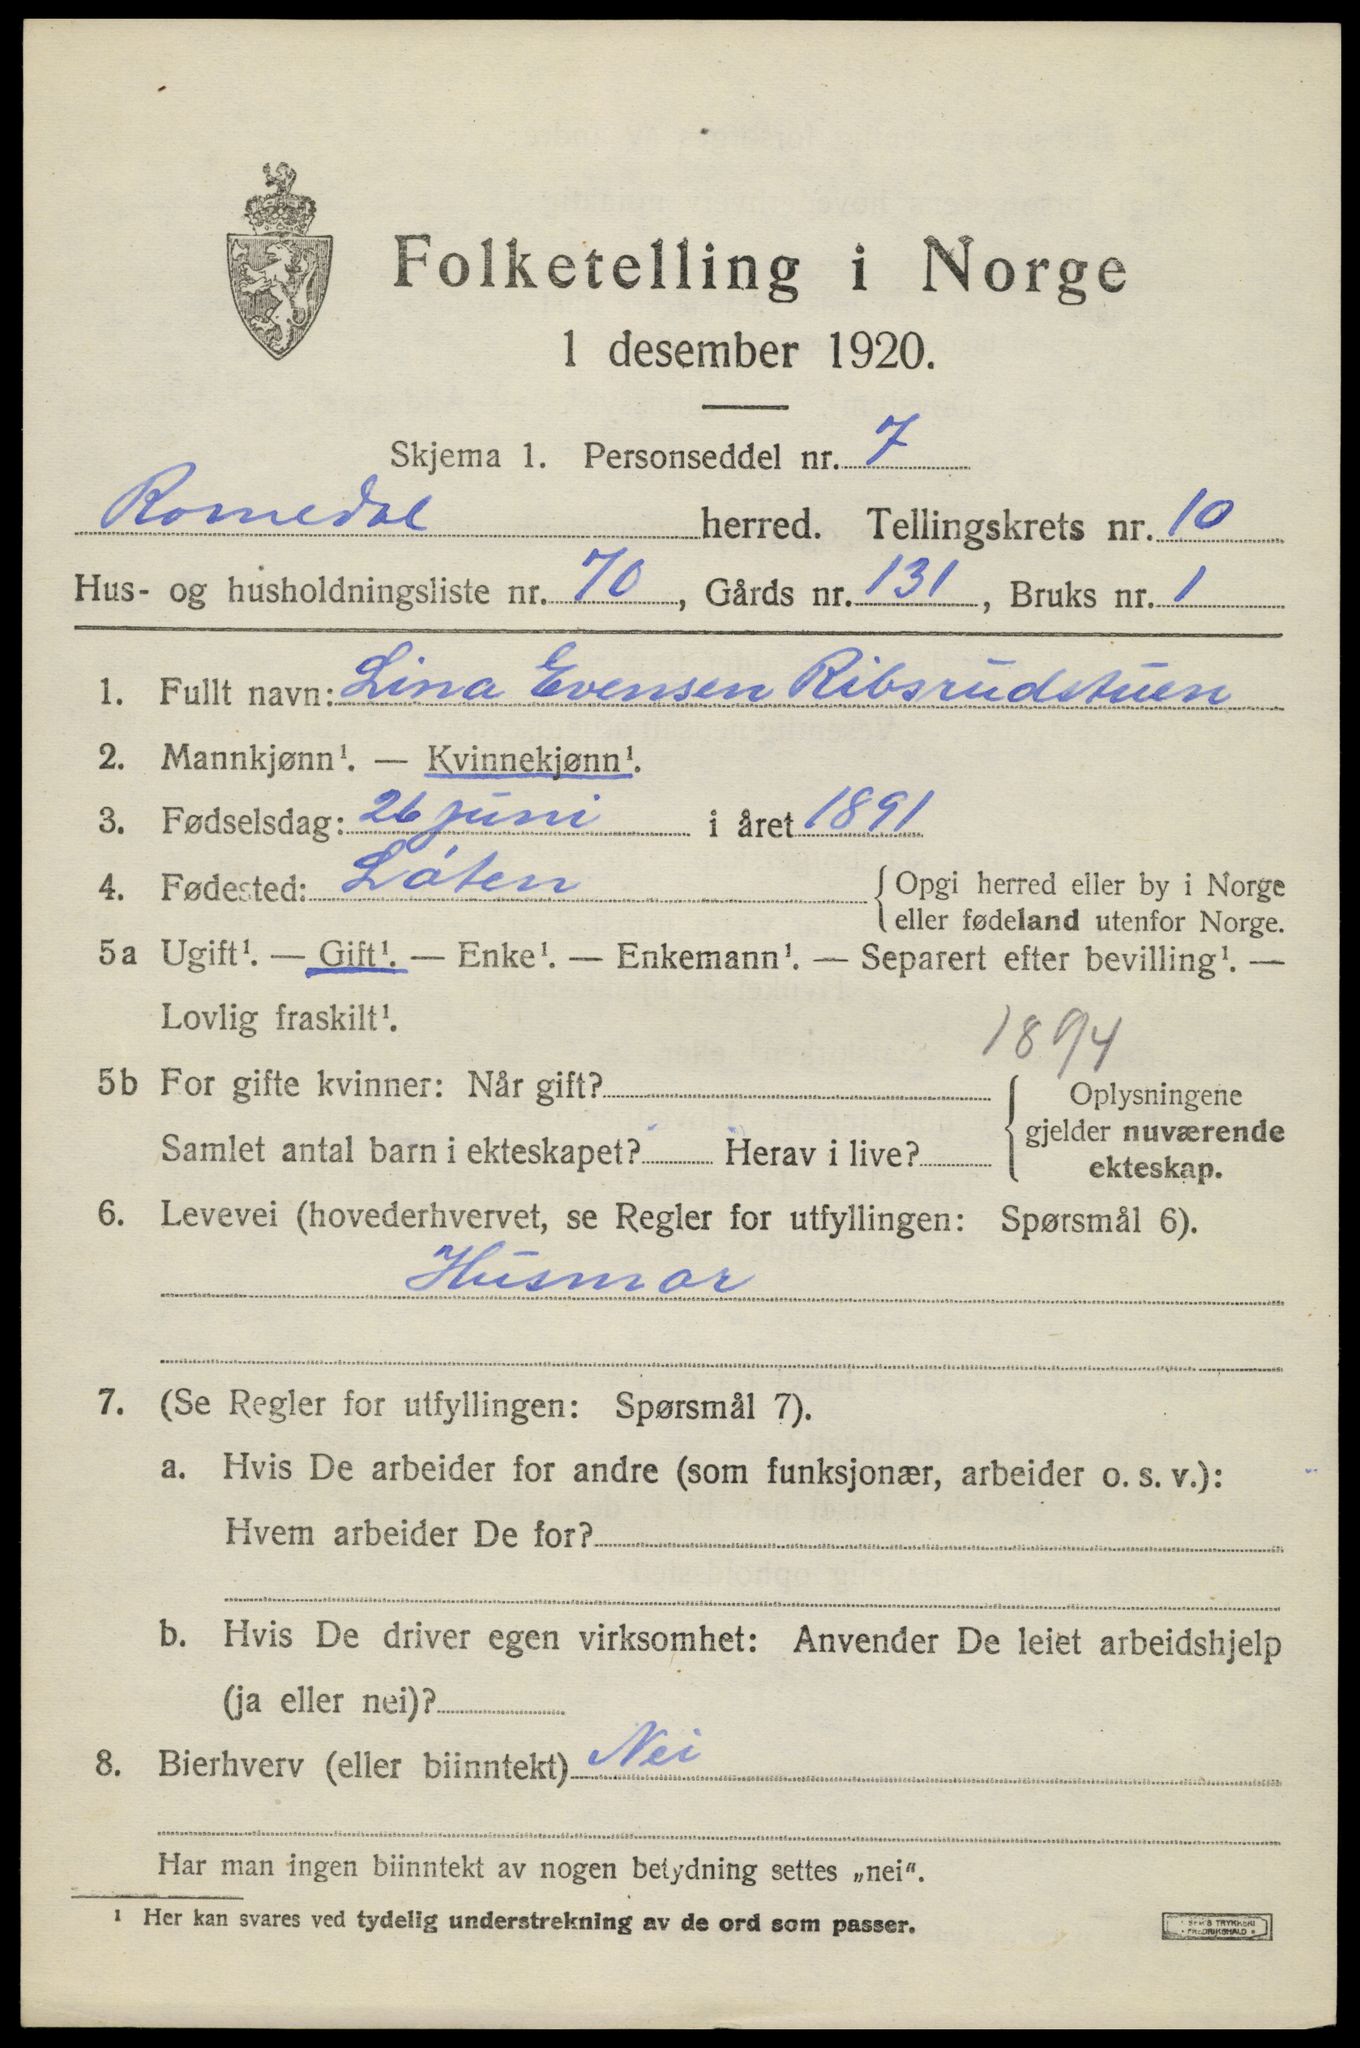 Folketelling i Norge
1 desember 1920.
Skjema 1. Personseddel nr. 7
Romedal herred. Tellingskrets nr. 10
Hus- og husholdningsliste nr. 70, Gårds nr. 131, Bruks nr. 1
1. Fullt navn: Lina Evensen Ribsrudstuen
2. Mannkjønn¹. — Kvinnekjønn¹.
3. Fødselsdag: 26 juni i året 1891
4. Fødested: Løten {Opgi herred eller by i Norge
eller fødeland utenfor Norge.
5a Ugift¹. — Gift¹. — Enke¹. — Enkemann¹. — Separert efter bevilling¹. —
Lovlig fraskilt¹.
1894
5b For gifte kvinner: Når gift?
Samlet antal barn i ekteskapet? Herav i live?
{Oplysningene
gjelder nuværende
ekteskap.
6. Levevei (hovederhvervet, se Regler for utfyllingen: Spørsmål 6).
Husmor
7. (Se Regler for utfyllingen: Spørsmål 7).
a. Hvis De arbeider for andre (som funksjonær, arbeider o. s. v.):
Hvem arbeider De for?
b. Hvis De driver egen virksomhet: Anvender De leiet arbeidshjelp
(ja eller nei)?
8. Bierhverv (eller biinntekt) Nei
Har man ingen biinntekt av nogen betydning settes „nei“.
¹ Her kan svares ved tydelig understrekning av de ord som passer.
TRYKKERI
FREDRIKSHALD